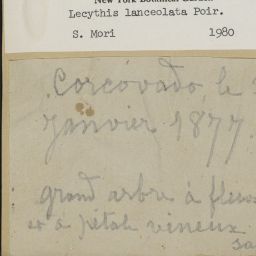 New York Botanical Garden
Lecythis lanceolata Poir.
S. Mori 1980
Corcovado, le
Janvier 1877.
grand arbre à fleurs
et à pétale vineux